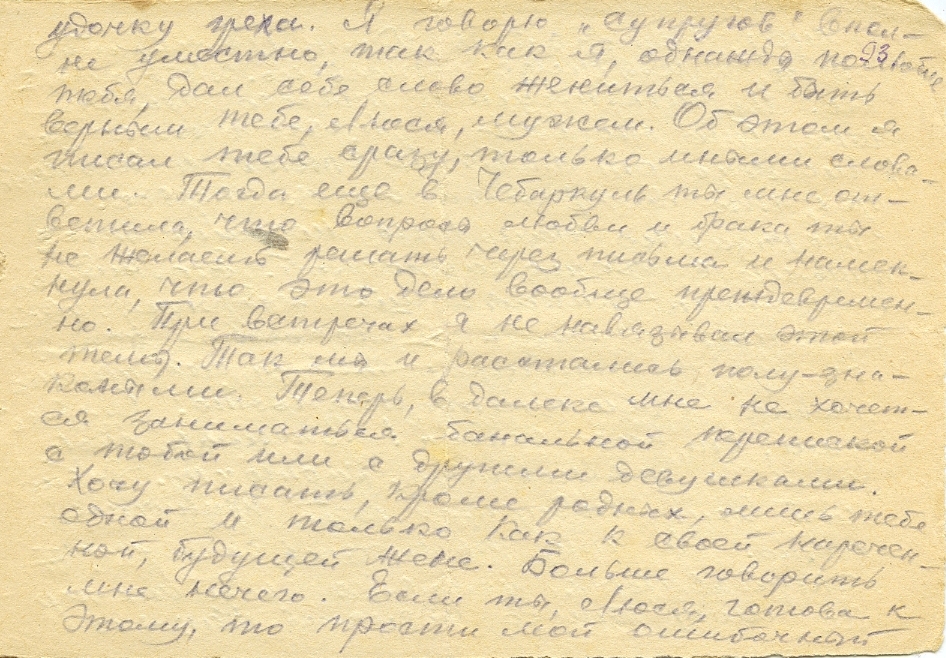 удочку греха. Я говорю „супругов" впол-
не уместно, так как я, однажды полюбив
93
тебя, дал себе слово жениться и быть
верным тебе, Люся, мужем. Об этом я
писал тебе сразу, только иными слова-
ми. Тогда еще в Чебаркуль ты мне от-
ветила, что вопроса любви и брака ты
не желаешь решать через письма и намек-
нула, что это дело вообще преждевремен-
но. При встречах я не навязывал этой
темы. Так мы и расстались полу-зна-
комыми. Теперь, в далеке мне не хочет-
ся заниматься банальной перепиской
с тобой или с другими девушками.
Хочу писать, кроме родных, лишь тебе
одной и только как к своей наречен-
ной, будущей жене. Больше говорить
мне нечего. Если ты, Люся, готова к
этому, то прости мой ошибочный